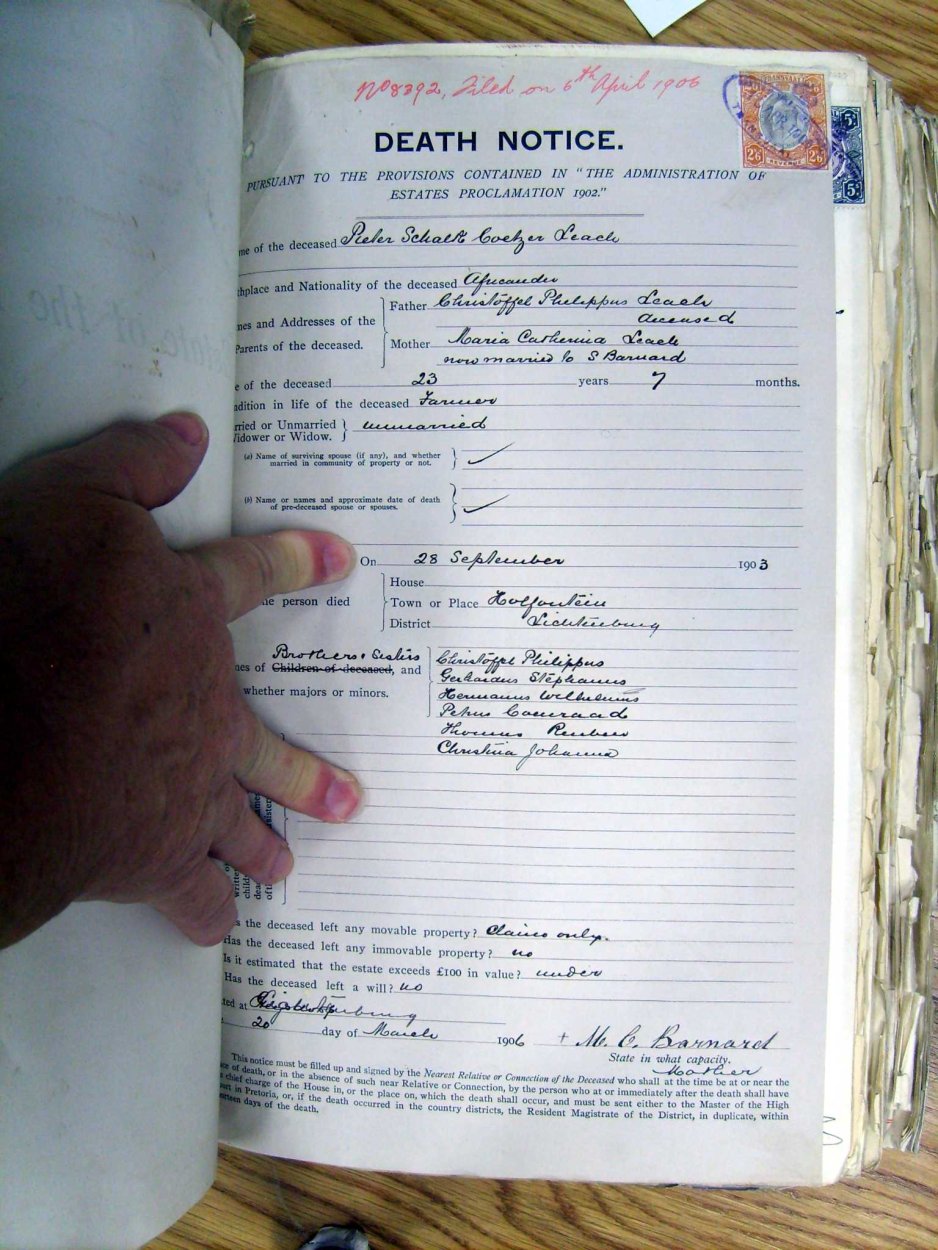 No 8392, Filed on 6th April 1906
DEATH NOTICE.
PURSUANT TO THE PROVISIONS CONTAINED IN "THE ADMINISTRATION OF
ESTATES PROCLAMATION 1902."
me of the deceased Pieter Schalk Coetzer Leach
thplace and Nationality of the deceased Africander
nes and Addresses of the
Parents of the deceased.
Father Christoffel Philippus Leach
deceased
Mother Maria Catherina Leach
now married to S Barnard
e of the deceased 23 years 7 months.
ndition in life of the deceased Farmer
rried or Unmarried
Widower or Widow.
unmarried
(a) Name of surviving spouse (if any), and whether
married in community of property or not.
(b) Name or names and approximate date of death
of pre-deceased spouse or spouses.
On 28 September 1903
House
he person died Town or Place Holfontein
District Lichtenburg
Brothers & Sisters
nes of Children of deceased, and
whether majors or minors.
Christoffel Philippus
Gerhardus Stephanus
Hermanus Wilhelmus
Petrus Coenraad
Thomas Reuben
Christina Johanna
s the deceased left any movable property? Claims only.
Has the deceased left any immovable property? no
Is it estimated that the estate exceeds £100 in value? under
Has the deceased left a will? no
ted at Lichtenburg
20 day of March 1906 + M. C. Barnard
State in what capacity.
Mother
This notice must be filled up and signed by the Nearest Relative or Connection of the Deceased who shall at the time be at or near the
ce of death, or in the absence of such near Relative or Connection, by the person who at or immediately after the death shall have
chief charge of the House in, or the place on, which the death shall occur, and must be sent either to the Master of the High
urt in Pretoria, or, if the death occurred in the country districts, the Resident Magistrate of the District, in duplicate, within
rteen days of the death.
2/6 REVENUE 2/6
5/-
5/-